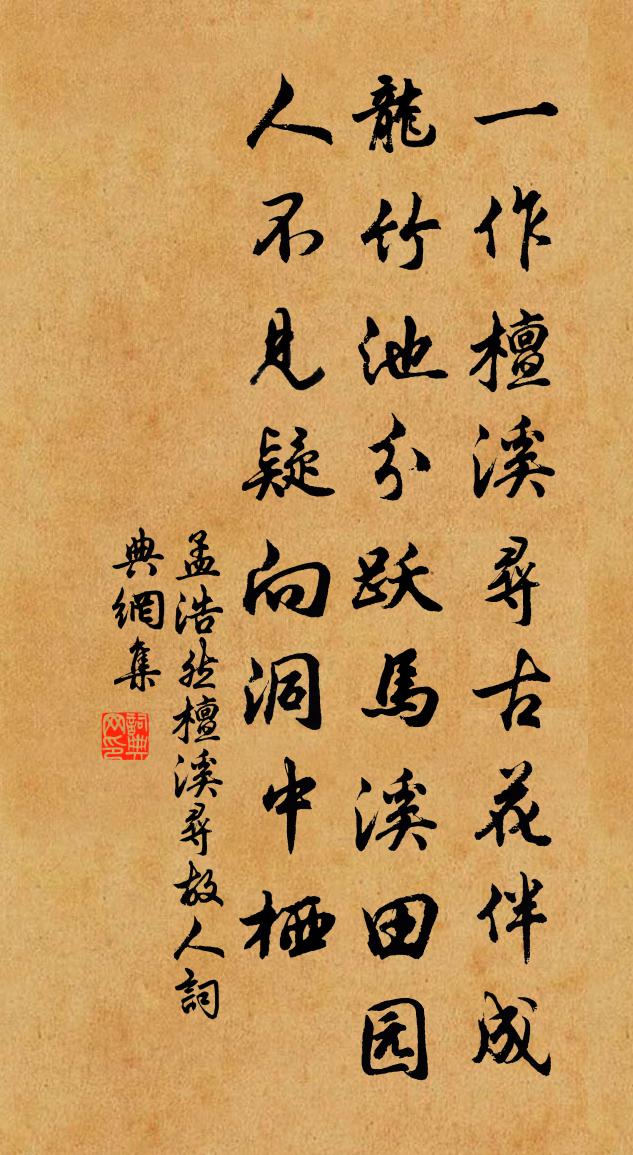 一作檀溪尋古花伴成
龍竹池分跃馬溪田园
人不见疑向洞中栖
孟浩然檀溪尋故人詞
典網集
詞典網印